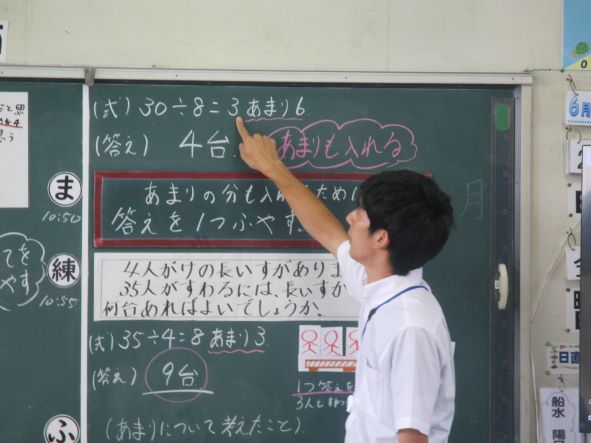 (式) 30÷8=3あまり6
(答え) 4台
あまりも入れる
あまりの分も入れ
答えを1つふやす。
ま
10:50
練
10:55
ふ
4人がけの長いすがありま
35人がすわるには、長いすが
何台あればよいでしょうか。
(式) 35÷4=8あまり3
(答え) 9台
1つ答えを
(あまりについて考えたこと)
月
6月
日直
船水